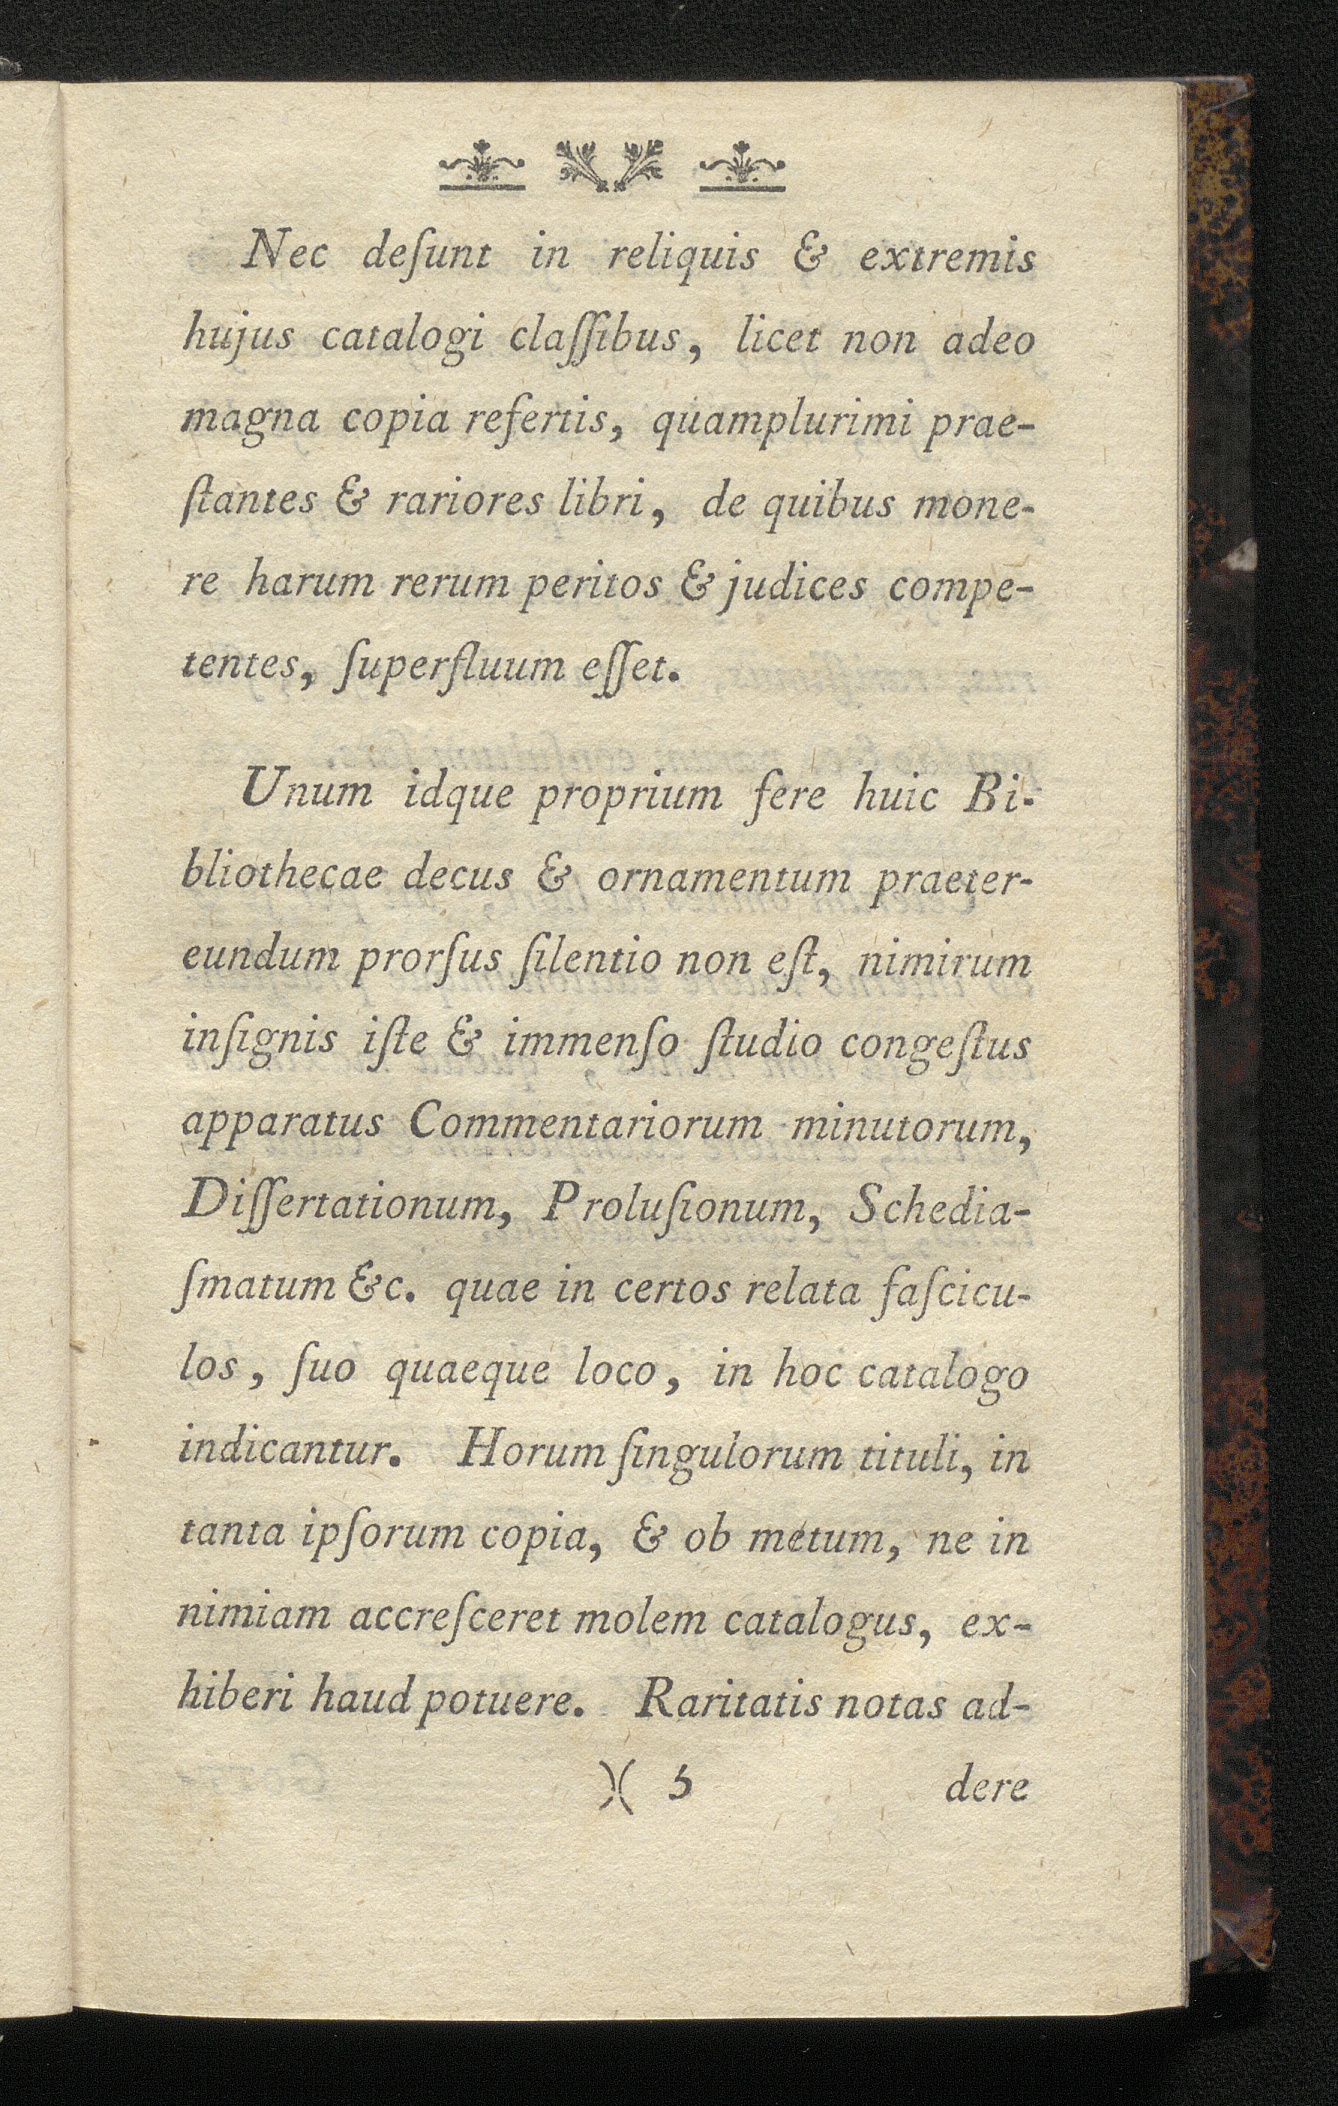 Nec deſunt in reliquis & extremis
hujus catalogi claſſibus, licet non adeo
magna copia refertis, quamplurimi prae-
ſtantes & rariores libri, de quibus mone-
re harum rerum peritos & judices compe-
tentes, ſuperfluum eſſet.
Unum idque proprium fere huic Bi-
bliothecae decus & ornamentum praeter-
eundum prorſus ſilentio non eſt, nimirum
inſignis iſte & immenſo ſtudio congeſtus
apparatus Commentariorum minutorum,
Diſſertationum, Proluſionum, Schedia-
ſmatum &c. quae in certos relata faſcicu-
los, ſuo quaeque loco, in hoc catalogo
indicantur. Horum ſingulorum tituli, in
tanta ipſorum copia, & ob metum, ne in
nimiam accreſceret molem catalogus, ex-
hiberi haud potuere. Raritatis notas ad-
)( 5 dere